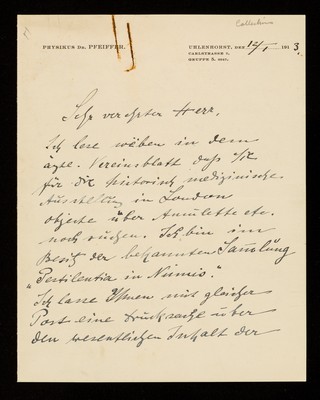 Collections
PHYSIKUS DR. PFEIFFER.
UHLENHORST, DEN 12/I 1913.
CARLSTRASSE
GRUPPE
Sehr verehrter Herr,
Ich lese soeben in dem
ärzte. Vereinsblatt daß Sie
für die historisch medizinische
Ausstellung in London
objecte über Amulette etc.
noch suchen. Ich bin im
Besitz der bekannten Samlung
"Pestilentia in Nūmis."
Ich lasse Ihnen mit gleicher
Post eine Drucksache über
den wesentlichen Inhalt der